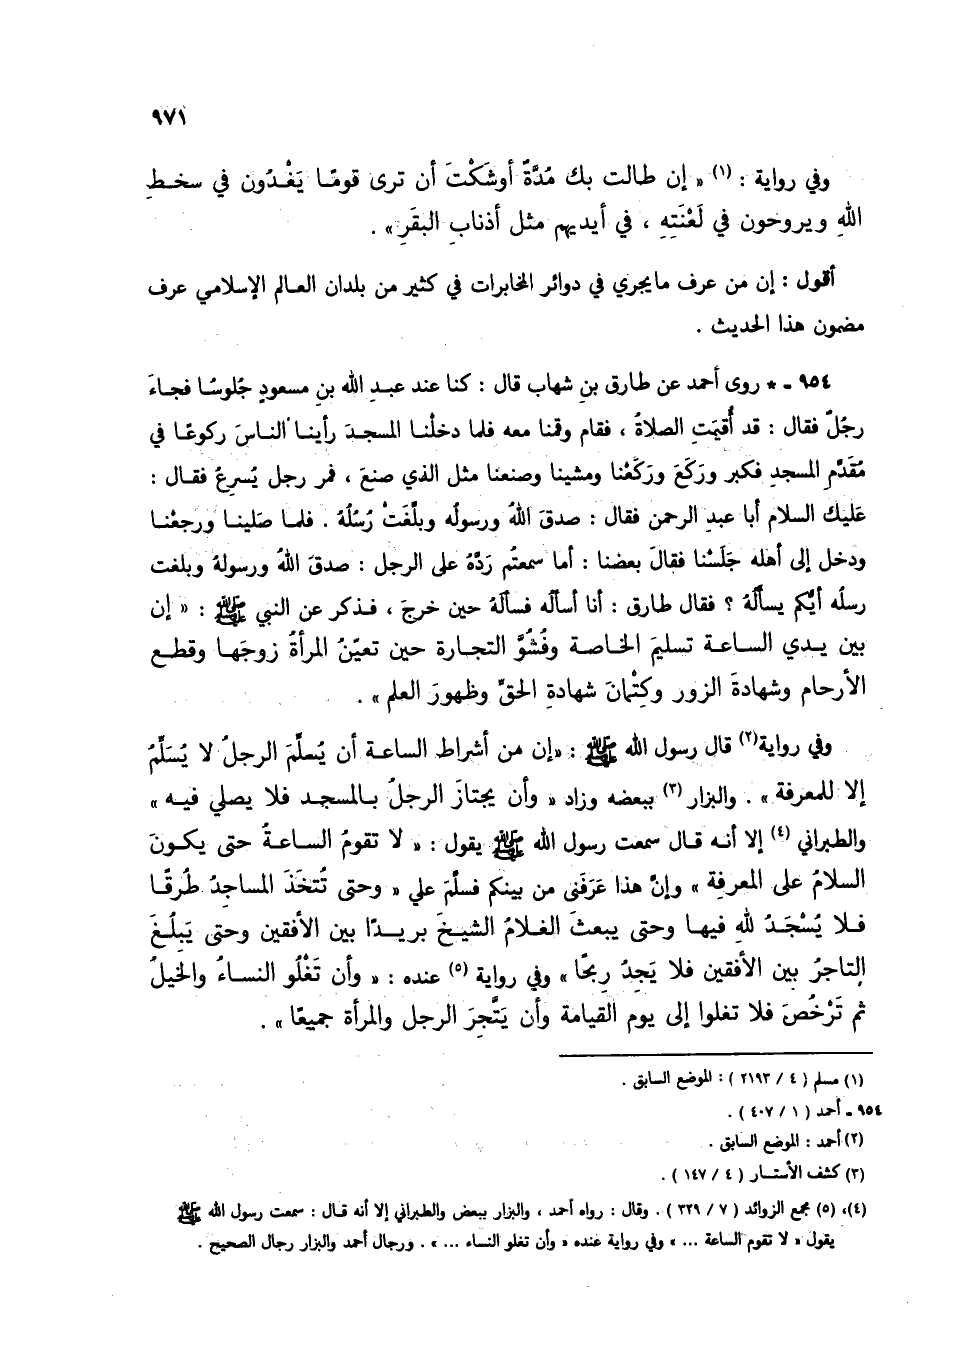 ٩٧١
وفي رواية : (١) « إن طالت بك مُدَّةٌ أوشَكْتَ أن ترى قومًا يَغْدُون في سخطِ
اللهِ ويروحون في لَعْنَتِهِ ، في أيديهم مثل أذنابِ البقَرِ » .
أقول : إن من عرف مايجري في دوائر المخابرات في كثير من بلدان العالم الإسلامي عرف
مضمون هذا الحديث .
٩٥٤ - * روى أحمد عن طارق بنِ شهاب قال : كنا عند عبدِ الله بنِ مسعودٍ جُلوسًا فجاءَ
رجُلٌ فقال : قد أُقيمَتِ الصلاةُ ، فقام وقمنا معه فلما دخلْنا المسجدَ رأينا الناسَ ركوعًا في
مُقَدَّمِ المسجدِ فكبر ورَكَعَ ورَكَعْنا ومشينا وصنعنا مثل الذي صنعَ ، فمر رجل يُسرِعُ فقال :
عَليك السلام أبا عبدِ الرحمن فقال : صدقَ اللهُ ورسولُه وبلَّغَتْ رُسُلُهُ . فلما صَلينا ورجعْنا
ودخل إلى أهله جَلَسْنا فقالَ بعضنا : أما سمعتُم رَدَّهُ على الرجل : صدقَ اللهُ ورسولهُ وبلغت
رسلُه أيُّكم يسألُهُ ؟ فقال طارق : أنا أسألُه فسألَهُ حين خرجَ ، فذكر عن النبي ﷺ : « إن
بين يدي الساعة تسليمَ الخاصة وفُشُوَّ التجارة حين تعيّنُ المرأةُ زوجَها وقطع
الأرحام وشهادةَ الزور وكِتْمانَ شهادةِ الحقِّ وظهورَ العلم » .
وفي رواية(٢) قال رسول الله ﷺ : «إن من أشراط الساعة أن يُسلِّمَ الرجلُ لا يُسَلِّمُ
إلا للمعرفة » . والبزار (٣) ببعضه وزاد « وأن يجتازَ الرجلُ بالمسجد فلا يصلي فيه »
والطبراني (٤) إلا أنه قال سمعت رسول الله ﷺ يقول : « لا تقومُ الساعةُ حتى يكونَ
السلامُ على المعرفة » وإنَّ هذا عَرَفَنى من بينكم فسلَّمَ علي « وحتى تُتخَذَ المساجدُ طُرقًا
فلا يُسْجَدُ للهِ فيها وحتى يبعثَ الغلامُ الشيخَ بريدًا بين الأفقين وحتى يَبلُغَ
التاجرُ بين الأفقين فلا يَجِدُ رِبحًا » وفي رواية (٥) عنده : « وأن تَغْلُو النساءُ والخيلُ
ثم تَرْخُصَ فلا تغلوا إلى يوم القيامة وأن يَتَّجِرَ الرجل والمرأة جميعًا » .
(١) مسلم ( ٤ / ٢١٩٣ ) : الموضع السابق .
٩٥٤ - أحمد ( ١ / ٤٠٧ ) .
(٢) أحمد : الموضع السابق .
(٣) كشف الأستار ( ٤ / ١٤٧ ) .
(٤)، (٥) مجمع الزوائد ( ٧ / ٣٢٩ ) . وقال : رواه أحمد ، والبزار ببعض والطبراني إلا أنه قال : سمعت رسول الله ﷺ
يقول « لا تقوم الساعة ... » وفي رواية عنده « وأن تغلو النساء ... » . ورجال أحمد والبزار رجال الصحيح .